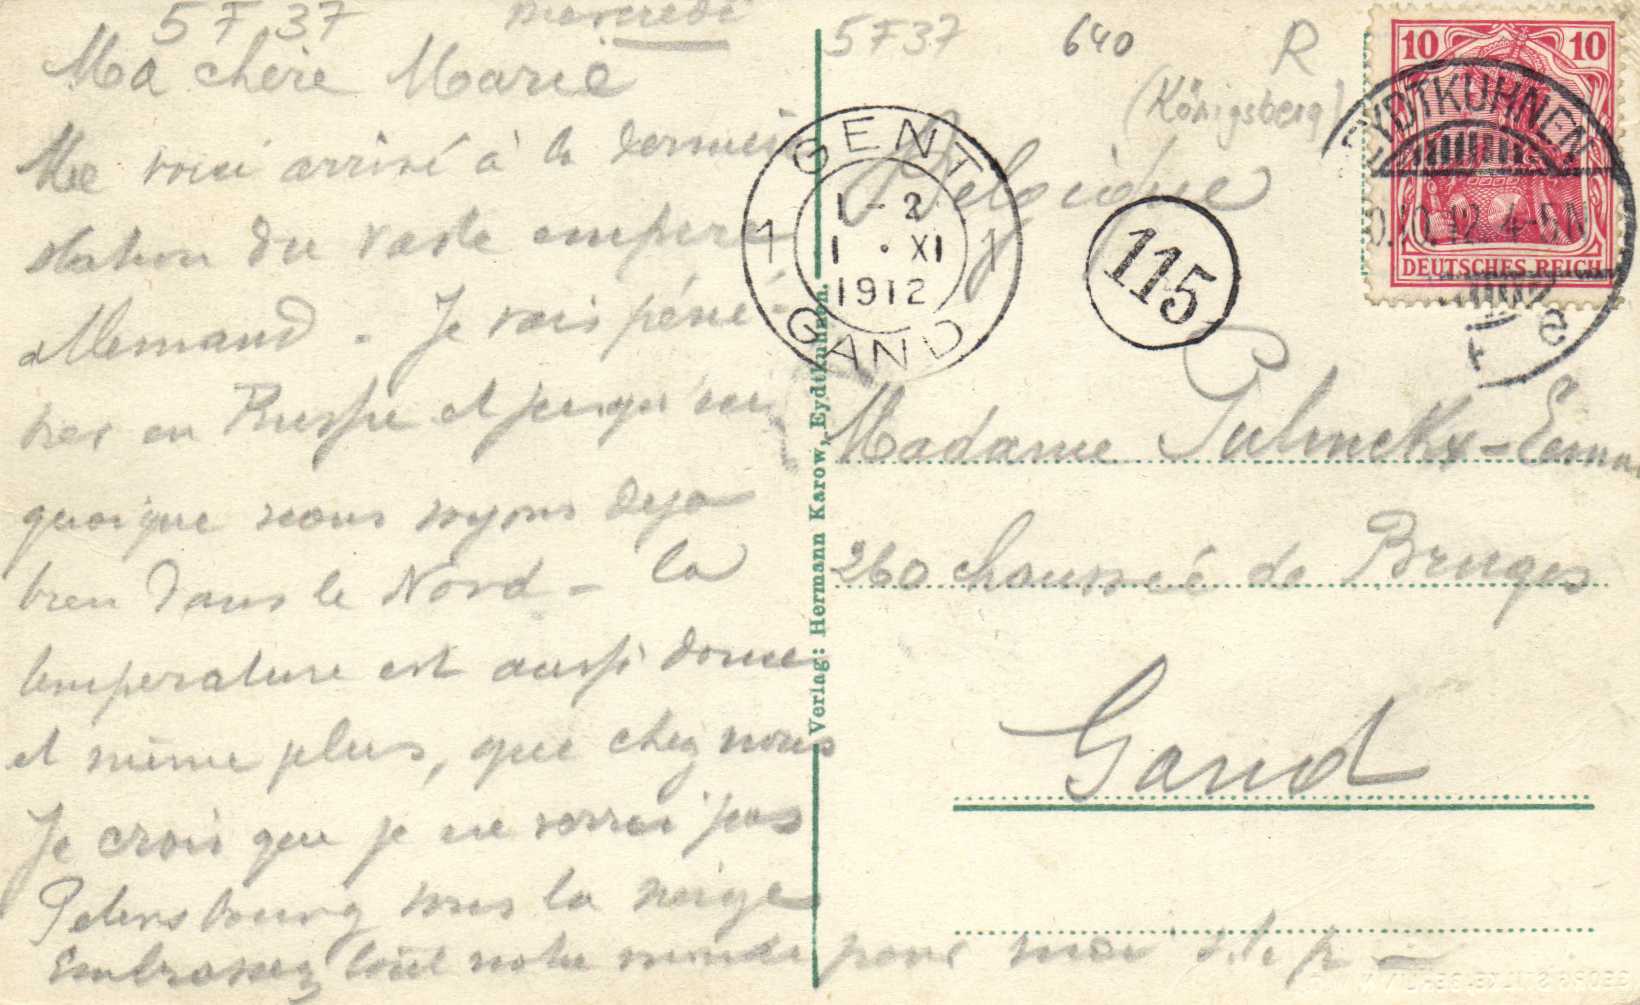 5 F 37 mercredi
Ma chère Marie
Me voici arrivé à la dernière
station du vaste empire
allemand. Je vais péné-
trer en Russie et jusqu'ici
quoique nous soyons déjà
bien dans le Nord – la
température est aussi douce
et même plus, que chez nous
Je crois que je ne verrai pas
Petersbourg sous la neige
Embrassez tout notre monde pour moi s.t.p –
Verlag: Hermann Karow, Eydtkuhnen.
5 F 37 640 R
(Königsberg)
Belgique
GENT
1 1
1 - 2
1 · XI
1912
GAND
115
10 10
DEUTSCHES REICH
EYDTKUHNEN
0.10.12. 4-5 N
* e
Madame
260 chaussée de Bruges
Gand